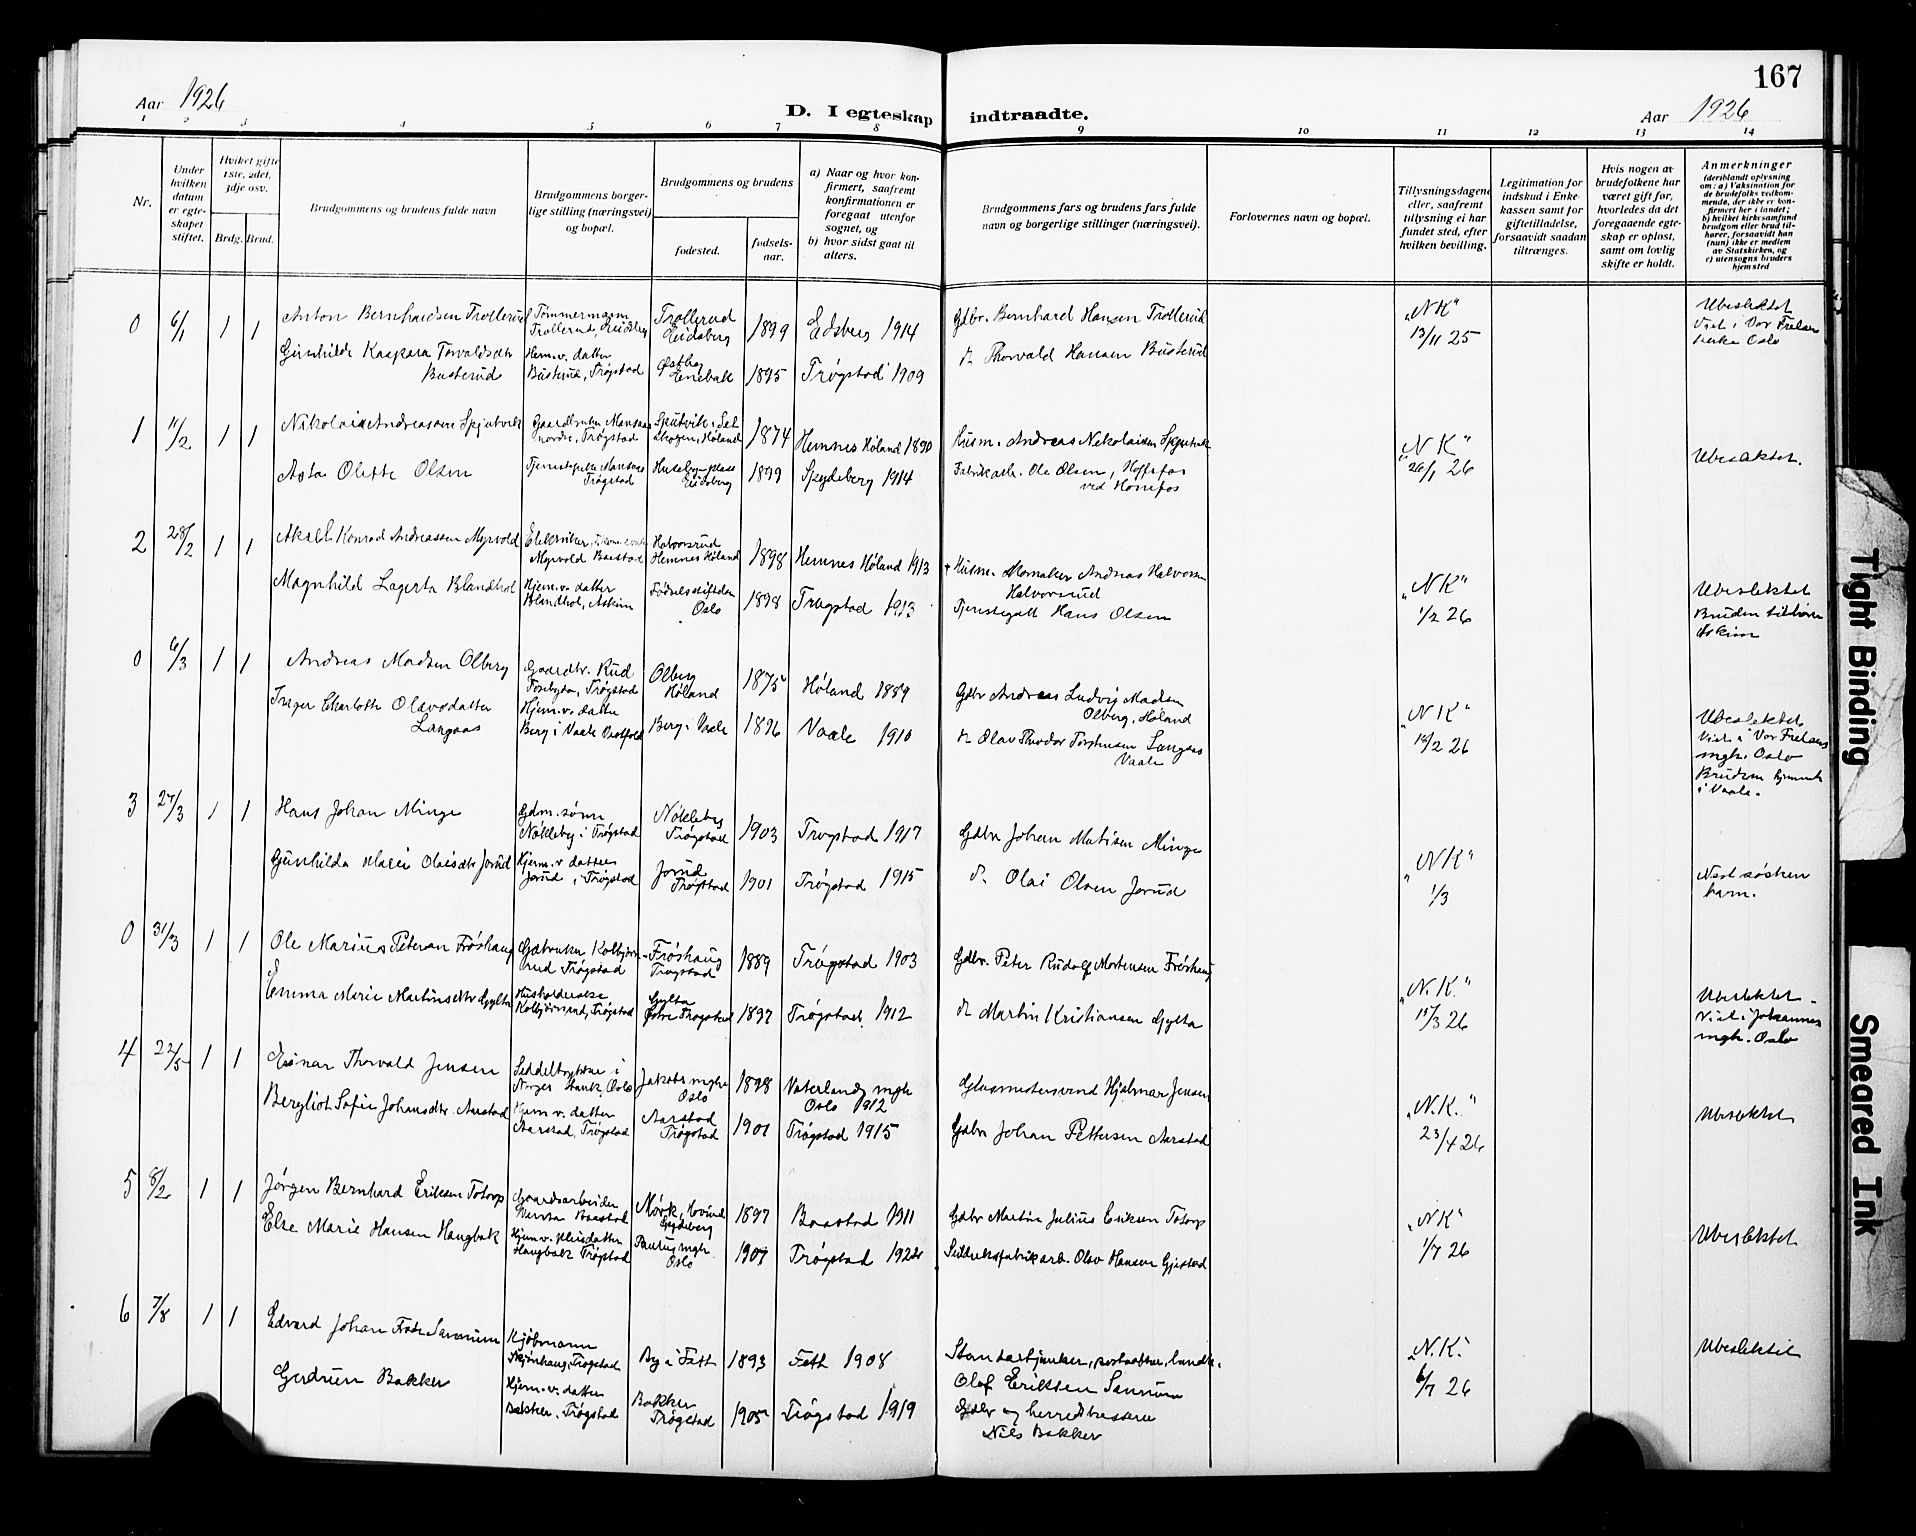 167
Aar 1926
D. I egteskap indtraadte.
Aar 1926
1 2 3 4 5 6 7 8 9 10 11 12 13 14
Nr.
Under hvilken datum er egteskapet stiftet.
Hvilket gifte 1ste, 2det, 3dje osv.
Brdg. Brud.
Brudgommens og brudens fulde navn
Brudgommens borgerlige stilling (næringsvei) og bopæl.
Brudgommens og brudens
fødested.
fødselsaar.
a) Naar og hvor konfirmert, saafremt konfirmationen er foregaat utenfor sognet, og
b) hvor sidst gaat til alters.
Brudgommens fars og brudens fars fulde navn og borgerlige stillinger (næringsvei).
Forlovernes navn og bopæl.
Tillysningsdagene eller, saafremt tillysning ei har fundet sted, efter hvilken bevilling.
Legitimation for indskud i Enkekassen samt for giftetilladelse, forsaavidt saadan tiltrænges.
Hvis nogen av brudefolkene har været gift før, hvorledes da det foregaaende egteskap er opløst, samt om lovlig skifte er holdt.
Anmerkninger
(deriblandt oplysning om: a) Vaksination for de brudefolks vedkommende, der ikke er konfirmert her i landet; b) hvilket kirkesamfund brudgom eller brud tilhører, forsaavidt han (hun) ikke er medlem av Statskirken, og c) utensogns bruders hjemsted
0 6/1 1 1 Anton Bernhardsen Trollerud Tømmermann Trollerud, Eidsberg Trollerud Eidsberg 1899 Eidsberg 1914 Gdbr. Bernhard Hansen Trollerud "NK" 13/11 25 Ubeslektet Viet i Vor Frelsers kirke Oslo
Gunhilde Kaspara Torvaldsdtr Busterud Hjem.v. datter Busterud, Trøgstad Østby Enebak 1895 Trøgstad 1909 Thorvald Hansen Busterud
1 11/2 1 1 Nikolai Andreassen Spjutvik Gaardbruker Mansaas nordre, Trøgstad Høland 1874 Hemnes Høland 1890 Husm. Andreas Nikolaisen "NK" 26/1 26 Ubeslektet.
Asta Olette Olsen Mansaas Trøgstad Eidsberg 1899 Spydeberg 1914 Fabrikarb. Ole Olsen, Hofsfos ved Hønefos
2 28/2 1 1 Aksel Konrad Andreassen Myrvold Myrvold Baastad Halvorsrud Hemnes Høland 1898 Hemnes Høland 1913 Andreas Halvorsen Halvorsrud "NK" 1/2 26 Ubeslektet Bruden tilhører Askim
Magnhild Lagerta Blandhol Hjem.v. datter Blandhol, Askim Fødselsstiftelsen Oslo 1898 Trøgstad 1913 Hans Olsen
0 6/3 1 1 Andreas Madsen Olberg Gaardbr. Rud Trøgstad Olberg Høland 1875 Høland 1889 Gdbr Andreas Ludvig Madsen Olberg, Høland "NK" 26 Ubeslektet Viet i Vor Frelsers mgh. Oslo Bruden hjemme i Vaale.
Inger Charlotte Olavsdatter Langaas Hjem.v. datter Berg i Vaale Vestfold Berg i Vaale 1896 Vaale 1910 Olav Theodor Torstensen Langaas Vaale
3 27/3 1 1 Hans Johan Minge Gdm. sønn Nøkleby i Trøgstad Nøkleby Trøgstad 1903 Trøgstad 1917 Gdbr Johan Matisen Minge "NK" 1/3 Nest søsken barn.
Gunhilda Marie Olaisdtr Jorud Hjem.v datter Jorud i Trøgstad Jorud Trøgstad 1901 Trøgstad 1915 Olai Olsen Jorud
0 31/3 1 1 Ole Marius Petersen Frøshaug Gdbruker Kolbjørnsrud Trøgstad Frøshaug Trøgstad 1889 Trøgstad 1903 Gdbr. Peter Rudolf Mortensen Frøshaug "N.K." 15/3 26 Ubeslektet - Viet i Johannes mgh. Oslo
Emma Marie Martinsdtr Gylta Kolbjørnsrud, Trøgstad Gylta Østre Trøgstad 1897 Trøgstad 1912 Martin Kristiansen Gylta
4 22/5 1 1 Einar Thorvald Jensen Seddeltrykker i Norges Bank, Oslo Jakobs mgh Oslo 1898 Vaterlands mgh Oslo 1912 Glasmestersvend Hjalmar Jensen "N.K." 23/4 26 Ubeslektet
Bergliot Sofie Johansdtr Aarstad Hjem v. datter Aarstad, Trøgstad Aarstad Trøgstad 1901 Trøgstad 1915 Gdbr Johan Pettersen Aarstad
5 8/2 1 1 Jørgen Bernhard Eriksen Totorp Gaardsarbeider Baastad Mørk, Hovind Spydeberg 1897 Baastad 1911 Gdbr Martin Julius Eriksen Totorp "NK" 1/7 26 Ubeslektet
Else Marie Hansen Haugbak Hjem.v. Haugbak Trøgstad Paulus mgh. Oslo 1907 Trøgstad Olav Hansen Gjestad
6 7/8 1 1 Edvard Johan Sannum Kjøbmann Skjønhaug, Trøgstad By i Feth 1893 Feth 1908 Olof Eriksen Sannum "N.K." 6/7 26 Ubeslektet
Gerdrun Bakker Hjem.v. datter Bakker, Trøgstad Bakker Trøgstad 1905 Trøgstad 1919 Gdbr og herredskasserer Nils Bakker
Tight Binding
Smeared Ink